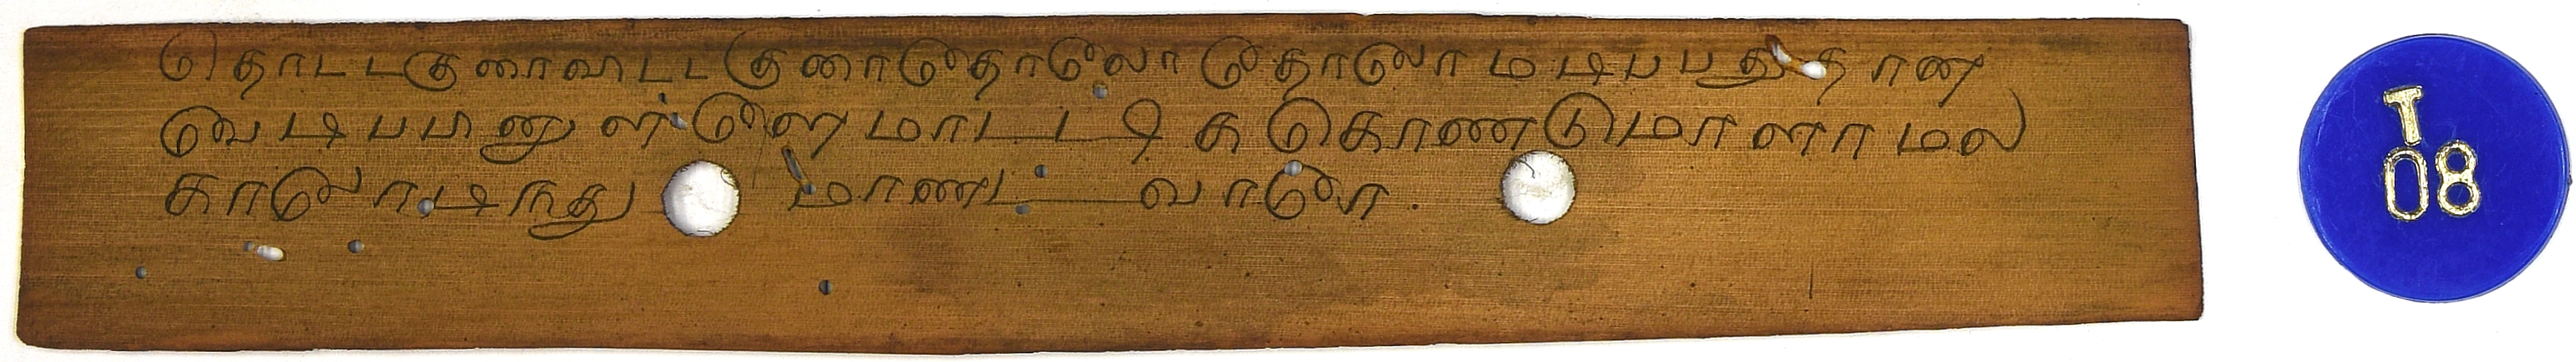 தொடடகுறைவிடடகுறைதொலொதொலொமடிபபதுதான
வெடிபபினுளளெமாடடிககொணடுமாளாமல
காலொடிநது மாணடவாரெ.
T
08